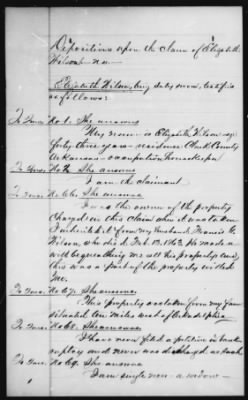 Depositions upon the claim of Elizabeth
Wilson
Elizabeth Wilson, being duly sworn, testifies
as follows:
To Inter. No 1. She answers
My name is Elizabeth Wilson age
forty three years residence Clark County
Arkansas occupation Housekeeper
To Inter. She answers
I am the claimant
To Inter. No 66. She answers
I was the owner of the property
charged in this claim when it was taken
I inherited it from my husband Francis G.
Wilson, who died Feb. 17. 1863. He made a
will bequeathing me all his property and
this was a part of the property willed
me.
To Inter. No 67. She answers
This property was taken from my farm
situated ten miles west of Arkadelphia
To Inter. No 68. She answers
I have never filed a petition in bank-
ruptcy and never was discharged as such
To Inter. No 69. She answers
I am single now - a widow -